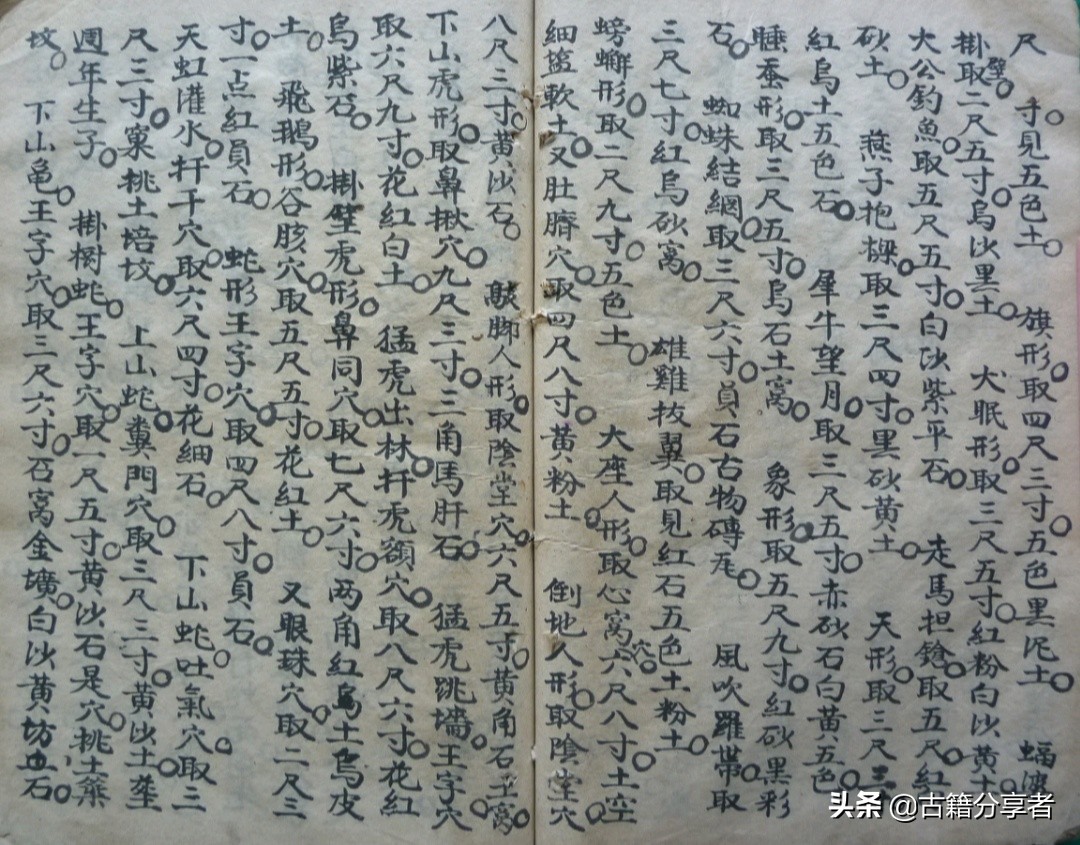 尺　手見五色土　旗形取四尺三寸五色黑泥土　蝠
掛壁取二尺五寸烏沙黑土　犬眠形取三尺五寸紅粉白沙黃土
大公釣魚取五尺五寸白沙紫平石　走馬担鎗取五尺紅
砂土　燕子抱樑取三尺四寸黑砂黃土　天形取三尺三
紅烏土五色石　犀牛望月取三尺五寸赤砂石白黃五色
睡蚕形取三尺五寸烏石土窩　象形取五尺九寸紅砂黑彩
石　蜘蛛結網取三尺六寸員石古物磚瓦　風吹羅帶取
三尺七寸紅烏砂窩　雄雞抜翼取見紅石五色土粉土
螃蠏形取二尺九寸五色土　大座人形取心窩穴六尺八寸土空
細篮軟土又肚臍穴取四尺八寸黃粉土　倒地人形取陰堂穴
八尺三寸黃沙石　蹺脚人形取陰堂穴六尺五寸黃角石土窩
下山虎形取鼻揪穴九尺三寸三角馬肝石　猛虎跳墻王字穴
取六尺九寸花紅白土　猛虎出林扦虎額穴取八尺六寸花紅
烏紫石　掛壁虎形鼻同穴取七尺六寸两角紅烏土烏皮
土　飛鵝形谷胲穴取五尺五寸花紅土　又眼珠穴取二尺三
寸一点紅員石　蛇形王字穴取四尺八寸員石
天虹灌水扦千穴取六尺四寸花細石　下山蛇吐氣穴取三
尺三寸窠桃土培坟　上山蛇糞門穴取三尺三寸黃沙土
週年生子　掛樹蛇王字穴取一尺五寸黃沙石是穴桃土築
坟　下山亀王字穴取三尺六寸石窩金壙白沙黃坊土石
头条 @古籍分享者